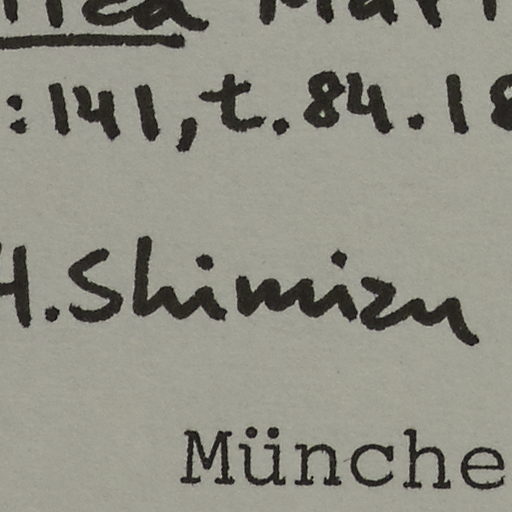 :141, t. 84. 18
H. Shimizu
Münche